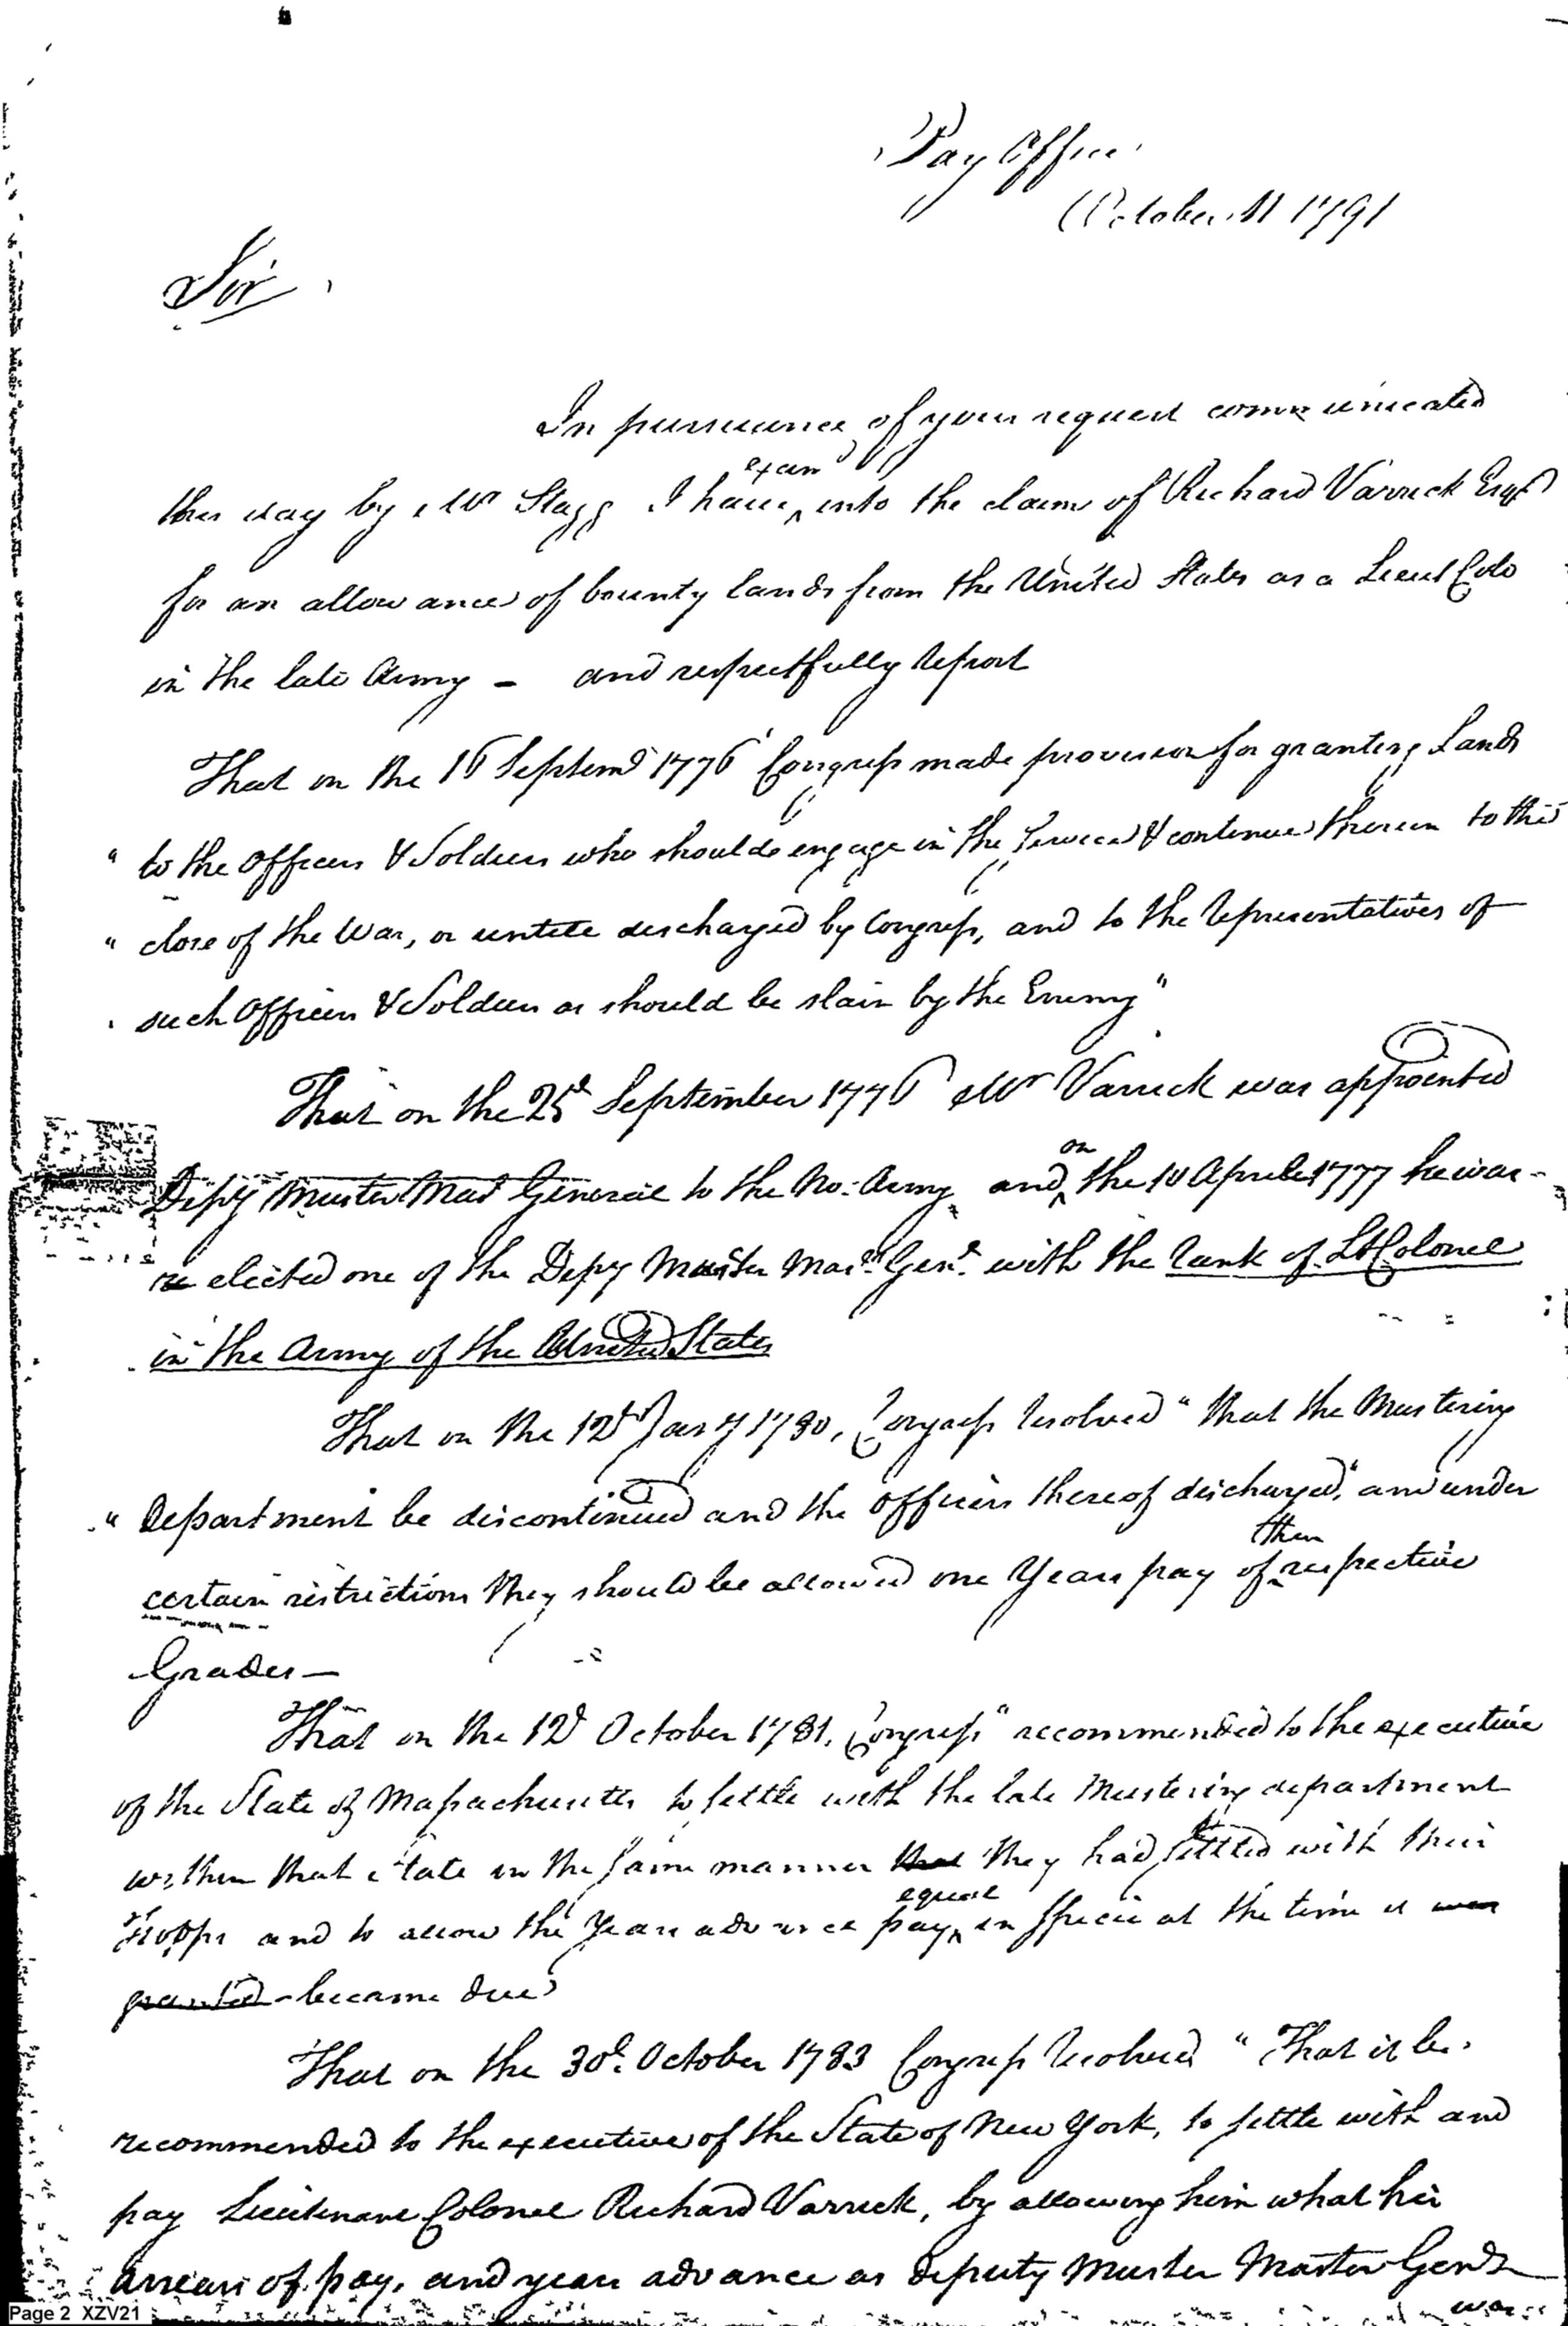 Pay Office
October 11 1791
Sir
In pursuance of your request communicated
exam
this day by Mr Stagg I have ^ into the claim of Richard Varick Esqr
for an allowance of bounty lands from the United States as a Lieut Colo
in the late Army – and respectfully report
That on the 16 Septemr 1776 Congress made provision for granting Lands
" to the Officers & Soldiers who should engage in the Service & continue therein to the
" close of the War, or untill discharged by Congress, and to the representatives of
" such Officers & Soldiers as should be slain by the Enemy"
That on the 25th September 1776 Mr Varick was appointed
on
Depy Muster Mas General to the No. Army and ^ the 10 Aprile 1777 he was
re elected one of the Depy Muster Mas. Genl. with the rank of Lt Colonel
in the Army of the United States
That on the 12th Jany 1780, Congress resolved " that the Mustering
" Department be discontinued and the officers thereof discharged," and under
then
certain restrictions they should be allowed one Years pay of ^ respective
Grades –
That on the 12th October 1781, Congress " recommended to the executive
of the State of Massachusetts to settle with the late Mustering department
within that State in the same manner that they had settled with their
equal
Troops and to allow the Years advance pay ^ in specie at the time it was
granted - became due
That on the 30th October 1783 Congress resolved " That it be
recommended to the executive of the State of New York, to settle with and
pay Lieutenant Colonel Richard Varick, by allowing him what his
arrears of pay, and years advance as deputy Muster Master Genl
was
Page 2 XZV21